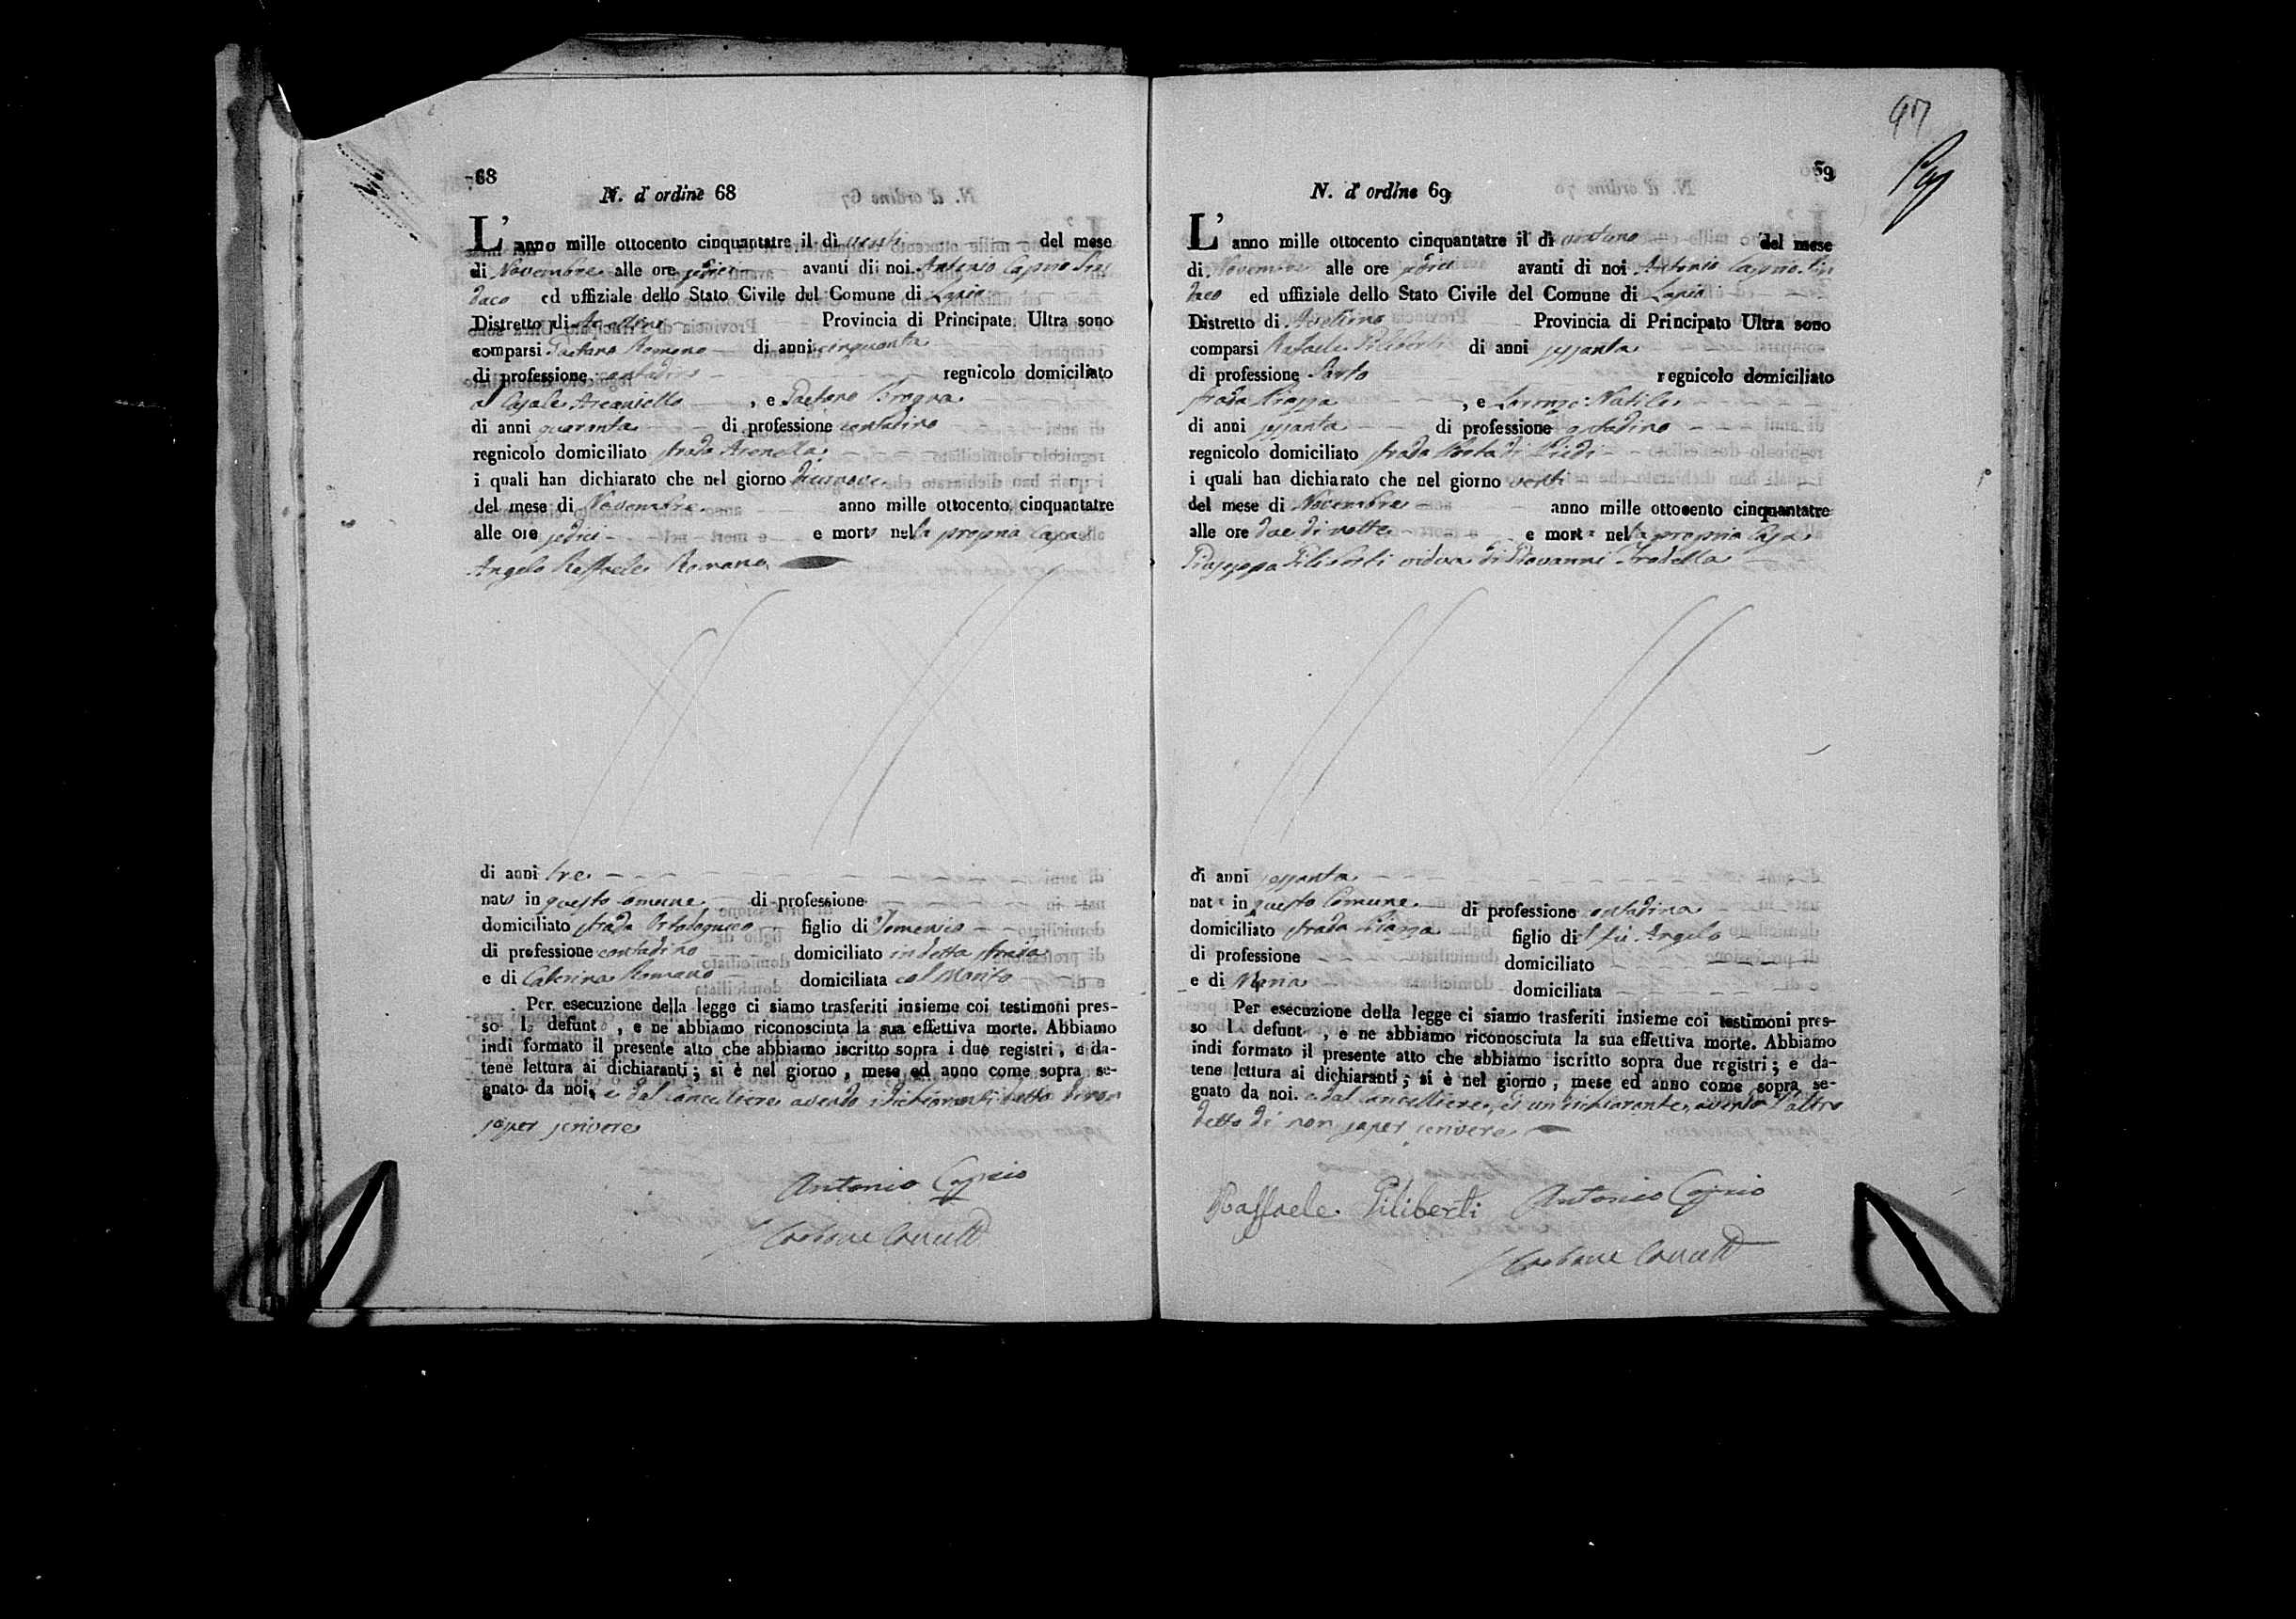 68
N. d' ordine 68
L' anno mille ottocento cinquantatre il dì venti del mese
di Novembre alle ore sedici avanti di noi Antonio Caprio Sin
daco ed uffiziale dello Stato Civile del Comune di Lapio
Distretto di Avellino Provincia di Principato Ultra sono
comparsi Gaetano Romano di anni cinquanta
di professione contadino regnicolo domiciliato
al Casale Arcaniello, e Gaetano
di anni quaranta di professione contadino
regnicolo domiciliato strada Arenella
i quali han dichiarato che nel giorno diecinove
del mese di Novembre anno mille ottocento cinquantatre
alle ore sedici e morto nella propria casa
Angelo Raffaele Romano
di anni tre
nato in questo Comune di professione
domiciliato strada figlio di Domenico
di professione contadino domiciliato in detta strada
e di Caterina Romano domiciliata col Marito
Per esecuzione della legge ci siamo trasferiti insieme coi testimoni pres-
so lo defunto, e ne abbiamo riconosciuta la sua effettiva morte. Abbiamo
indi formato il presente atto che abbiamo iscritto sopra i due registri, e da-
tene lettura ai dichiaranti; si è nel giorno, mese ed anno come sopra se-
gnato da noi, e dal Cancelliere avendo i dichiaranti detto di non
saper scrivere
Antonio Caprio
47
69
N. d' ordine 69
L' anno mille ottocento cinquantatre il dì ventuno del mese
di Novembre alle ore sedici avanti di noi Antonio Caprio Sin
daco ed uffiziale dello Stato Civile del Comune di Lapio
Distretto di Avellino Provincia di Principato Ultra sono
comparsi Raffaele Piliberti di anni sessanta
di professione Sarto regnicolo domiciliato
strada Piazza, e Lorenzo Natile
di anni sessanta di professione contadino
regnicolo domiciliato strada Porta di
i quali han dichiarato che nel giorno venti
del mese di Novembre anno mille ottocento cinquantatre
alle ore due di notte e morta nella propria Casa
Giuseppa Piliberti vedova di Giovanni
di anni sessanta
nata in questo Comune di professione contadina
domiciliato strada Piazza figlio di fu Angelo
di professione domiciliato
e di domiciliata
Per esecuzione della legge ci siamo trasferiti insieme coi testimoni pres-
so la defunta, e ne abbiamo riconosciuta la sua effettiva morte. Abbiamo
indi formato il presente atto che abbiamo iscritto sopra due registri; e da-
tene lettura ai dichiaranti; si è nel giorno, mese ed anno come sopra se-
gnato da noi. e dal Cancelliere, ed un dichiarante, avendo l'altro
detto di non saper scrivere
Raffaele Piliberti Antonio Caprio